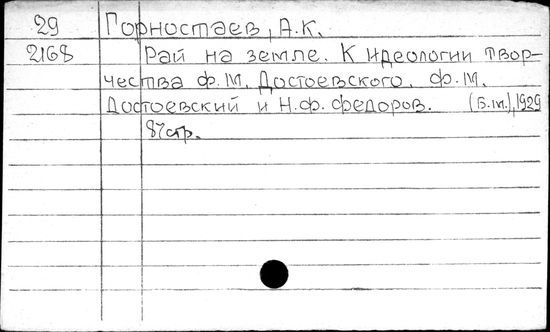 29 Горностаев, А.К.
2168 Рай на земле. К идеологии твор-
чества Ф.М. Достоевского. Ф.М.
Достоевский и Н.Ф. Федоров. (Б.м.), 1929
87 стр.